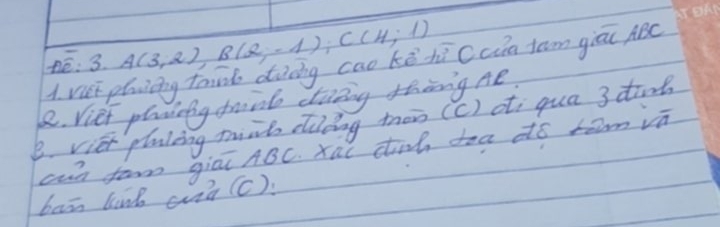 Đề: 3. A(3,2), B(2,-1); C(4;1)
1. Viết phương trình đường cao kẻ từ C của tam giác ABC
2. Viết phương trình đường thẳng AB
3. Viết phương trình đường tròn (C) đi qua 3 đỉnh
của tam giác ABC. Xác định tọa độ tâm và
bán kính của (C).